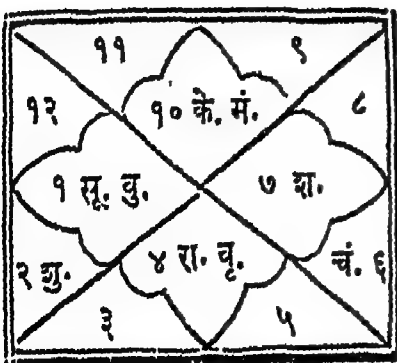 ११ ९
१२ १० के. मं. ८
१ सू. वु. ७ श.
२ शु. ४ रा. वृ. चं. ६
३ ५